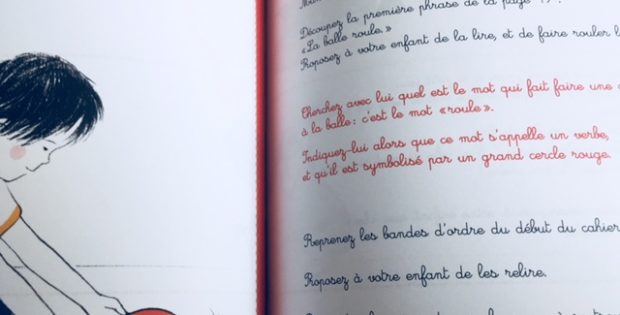 Découpez la première phrase de la page
«La balle roule.»
Proposez à votre enfant de la lire, et de faire rouler l
Cherchez avec lui quel est le mot qui fait faire une
à la balle : c'est le mot «roule».
Indiquez-lui alors que ce mot s'appelle un verbe,
et qu'il est symbolisé par un grand cercle rouge.
Reprenez les bandes d'ordre du début du cahier
Proposez à votre enfant de les relire.